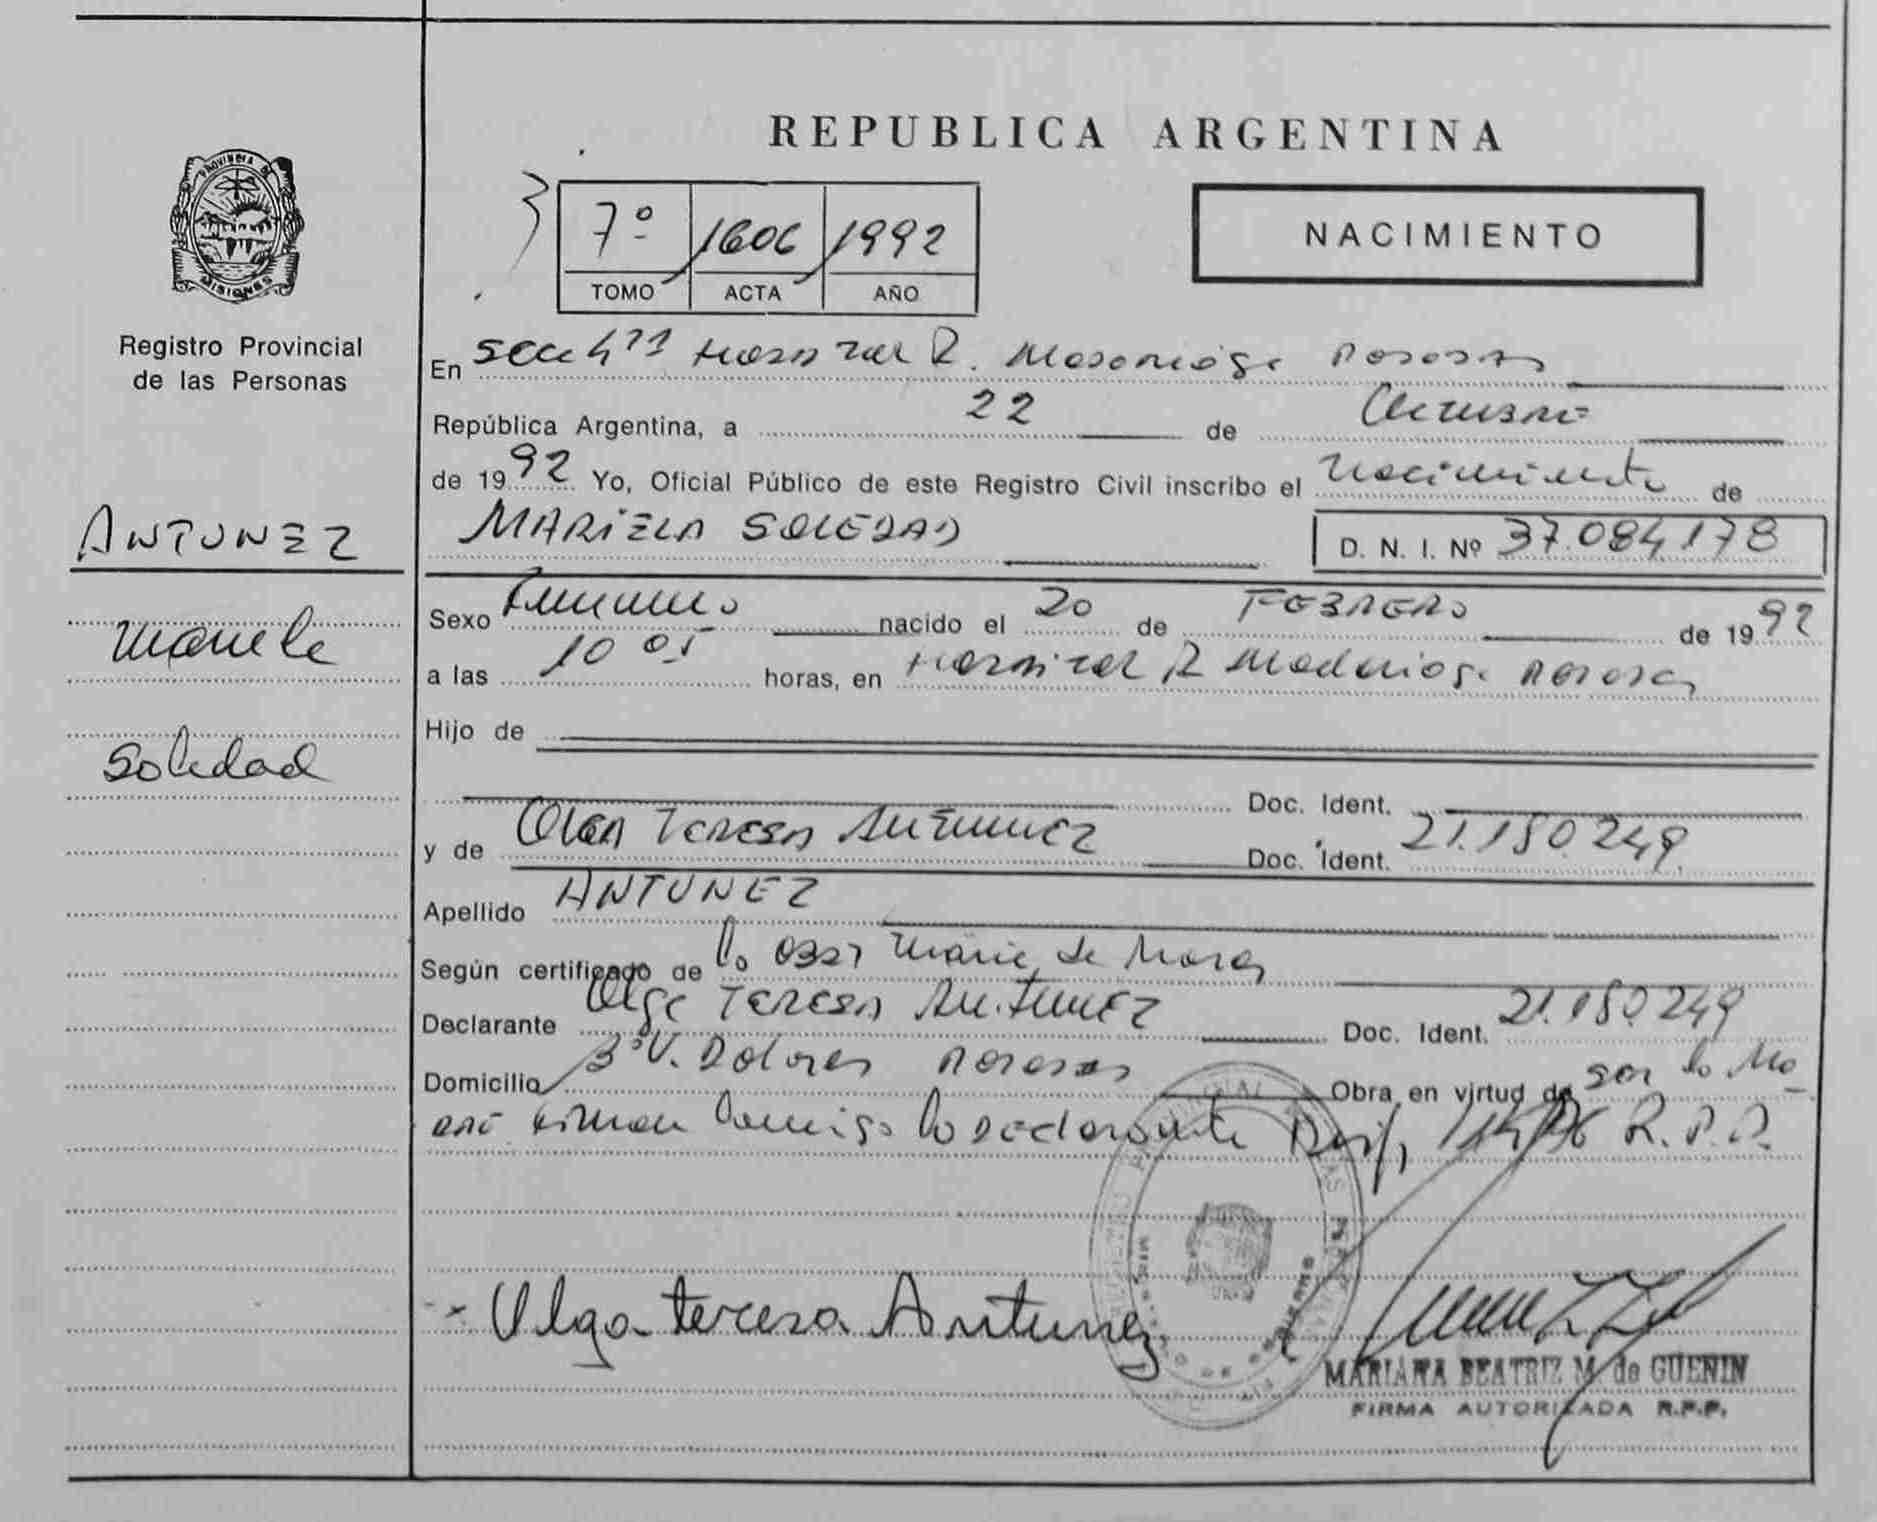 REPUBLICA ARGENTINA
PROVINCIA DE
MISIONES
Registro Provincial
de las Personas
7º 1606 1992
TOMO ACTA AÑO
NACIMIENTO
En Secc 4ta Hospital R. Posadas
República Argentina, a 22 de
de 1992 Yo, Oficial Público de este Registro Civil inscribo el nacimiento de
ANTUNEZ
MARIELA SOLEDAD D. N. I. Nº 37.084.178
Mariela
Sexo Femenino nacido el 20 de FEBRERO de 1992
a las 10 05 horas, en Hospital R Madariaga Posadas
Soledad
Hijo de
Doc. Ident.
y de Olga TERESA Antunez Doc. Ident. 21.180.249
Apellido ANTUNEZ
Según certificado de Maria de
Declarante Olga TERESA Antunez Doc. Ident. 21.180.249
Domicilio Bº V. Dolores Posadas Obra en virtud de ser la Ma
dre firman conmigo la declarante R.P.P.
Olga teresa Antunez
MARIANA BEATRIZ M. de GUENIN
FIRMA AUTORIZADA R.P.P.